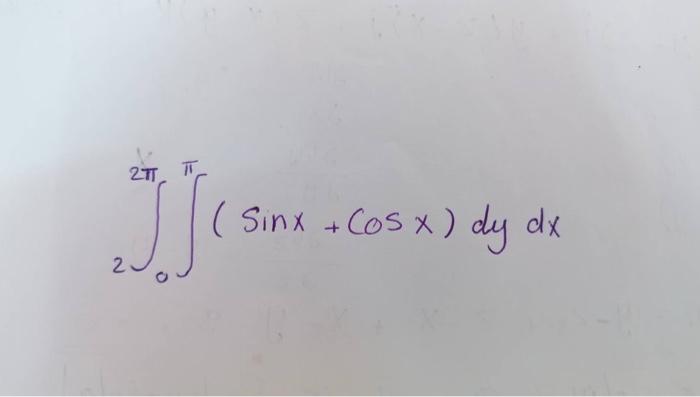 ∫₂^{2π} ∫₀^{π} (Sinx + Cosx) dy dx